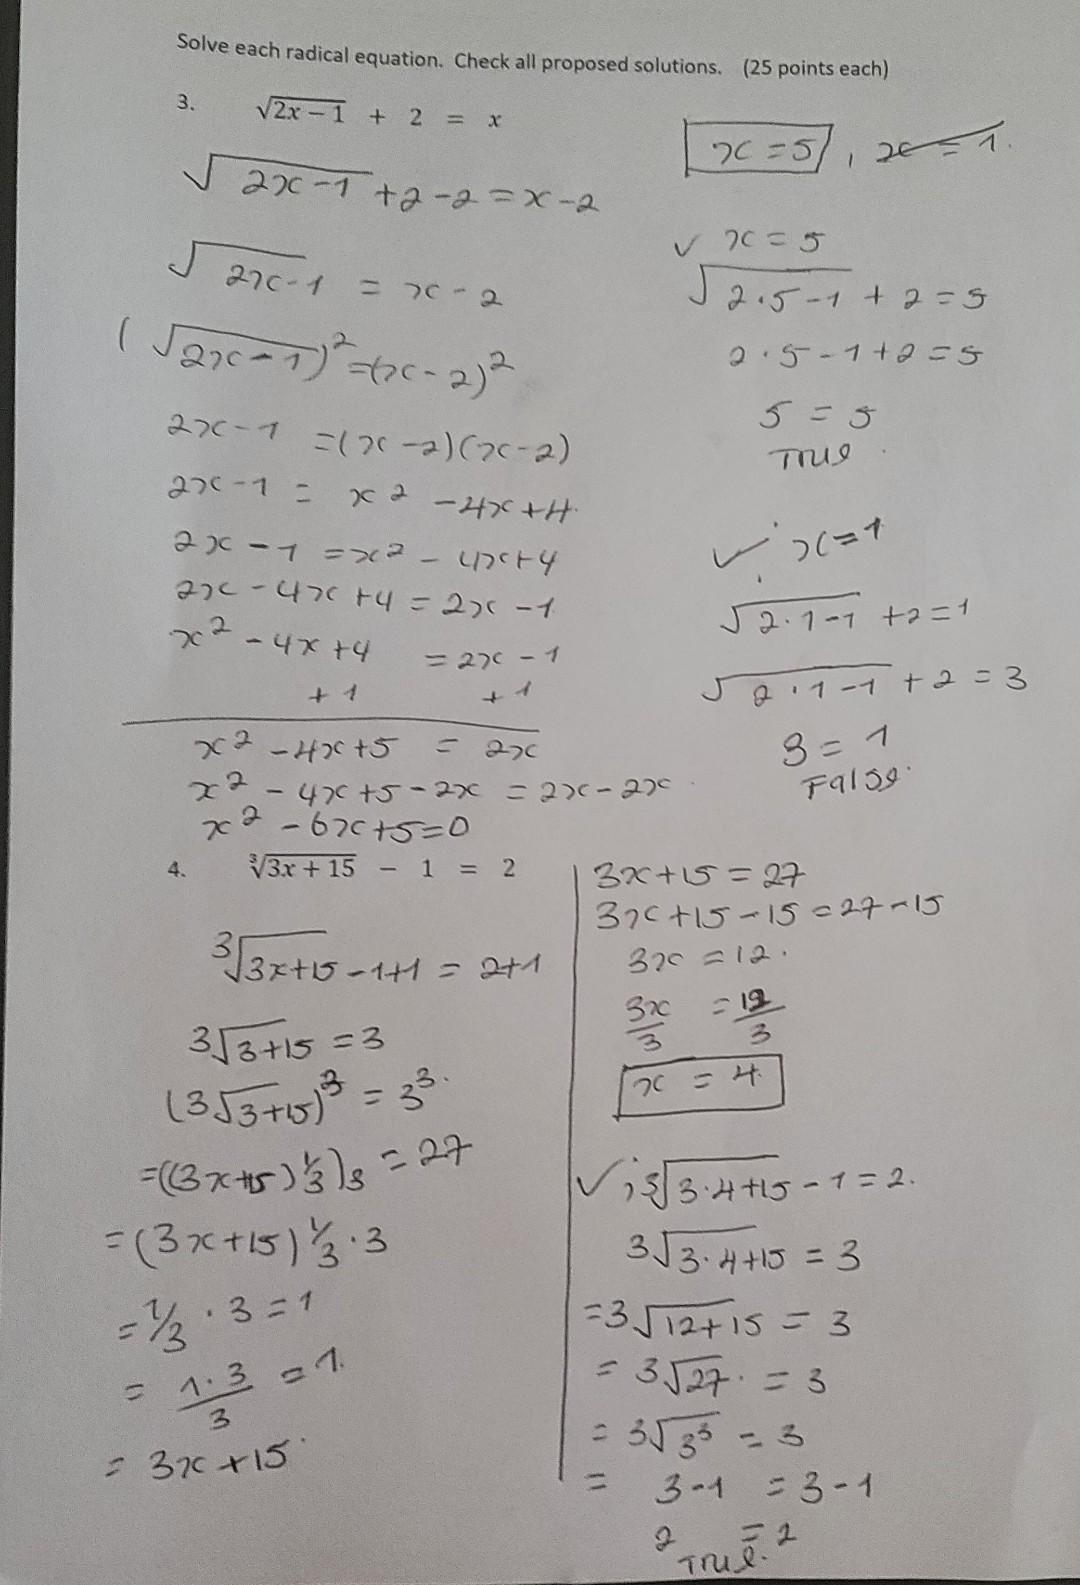 Solve each radical equation. Check all proposed solutions. (25 points each)
3. √2x − 1 + 2 = x
√2x-1 +2-2=x-2
√2x-1 = x-2
(√2x-1)²=(x-2)²
2x-1 =(x-2)(x-2)
2x-1 = x² -4x+4.
2x-1 =x² - 4x+4
2x-4x+4=2x-1
x²-4x+4 =2x-1
+1 +1
x²-4x+5 = 2x
x²-4x+5-2x = 2x-2x
x²-6x+5=0
x=5, x=1.
✓ x=5
√2·5-1 + 2=5
2·5-1+2=5
5=5
True.
✓; x=1
√2·1-1 +2=1
√2·1-1 +2=3
3=1
False.
4. ∛3x + 15 − 1 = 2
∛3x+15-1+1=2+1
3√3+15=3
(3√3+15)³=3³.
=((3x+15)⅓)3=27
=(3x+15)⅓·3
=⅓·3=1
= 1·3/3 =1.
= 3x+15.
3x+15=27
3x+15-15=27-15
3x=12.
3x/3 =12/3
x=4.
✓; ∛3·4+15-1=2.
3√3·4+15=3
=3√12+15=3
=3√27.=3
=3√3³=3
= 3-1 =3-1
2=2
True.